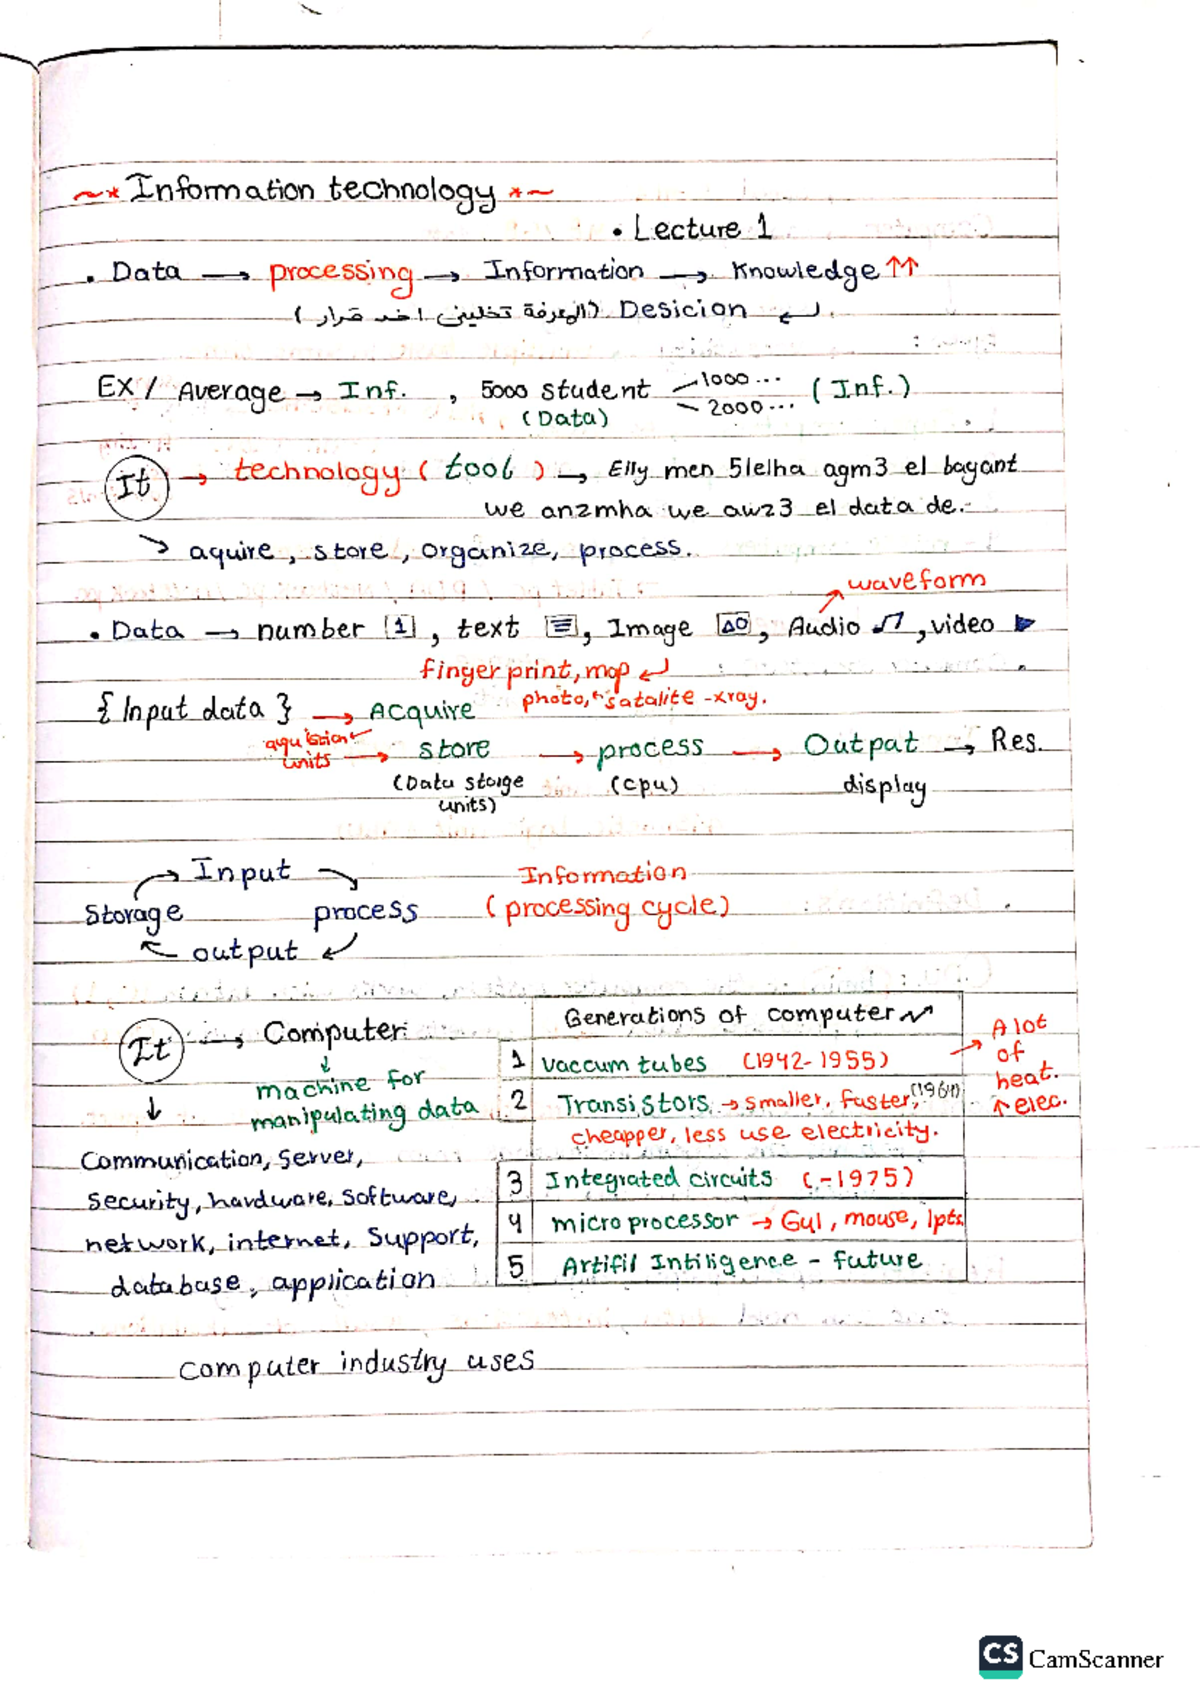 ~* Information technology *~
• Lecture 1
• Data → processing → Information → Knowledge ↑↑
(المعرفة تخليني اخد قرار) Desicion
EX / Average → Inf. , 5000 student 1000... 2000... (Inf.)
(Data)
It → technology (tool) → Elly men 5lelha agm3 el bayant
we anzmha we awz3 el data de.
aquire, store, organize, process.
waveform
• Data → number 1, text, Image, Audio, video
finger print, map
photo, satalite - xray.
{Input data} → Acquire
units → store → process → Output → Res.
(Data storge units) (cpu) display
Input
Storage process
output
Information
(processing cycle)
It → Computer:
machine for
manipulating data
Communication, Server,
security, hardware, software,
network, internet, Support,
database, application
Generations of computer
1 Vaccum tubes (1942-1955) → A lot of heat. ↑ elec.
2 Transistors → smaller, faster, (1964)
cheapper, less use electricity.
3 Integrated circuits (-1975)
4 microprocessor → GuI, mouse, lpts
5 Artifil Intiligence - future
computer industry uses
CS CamScanner